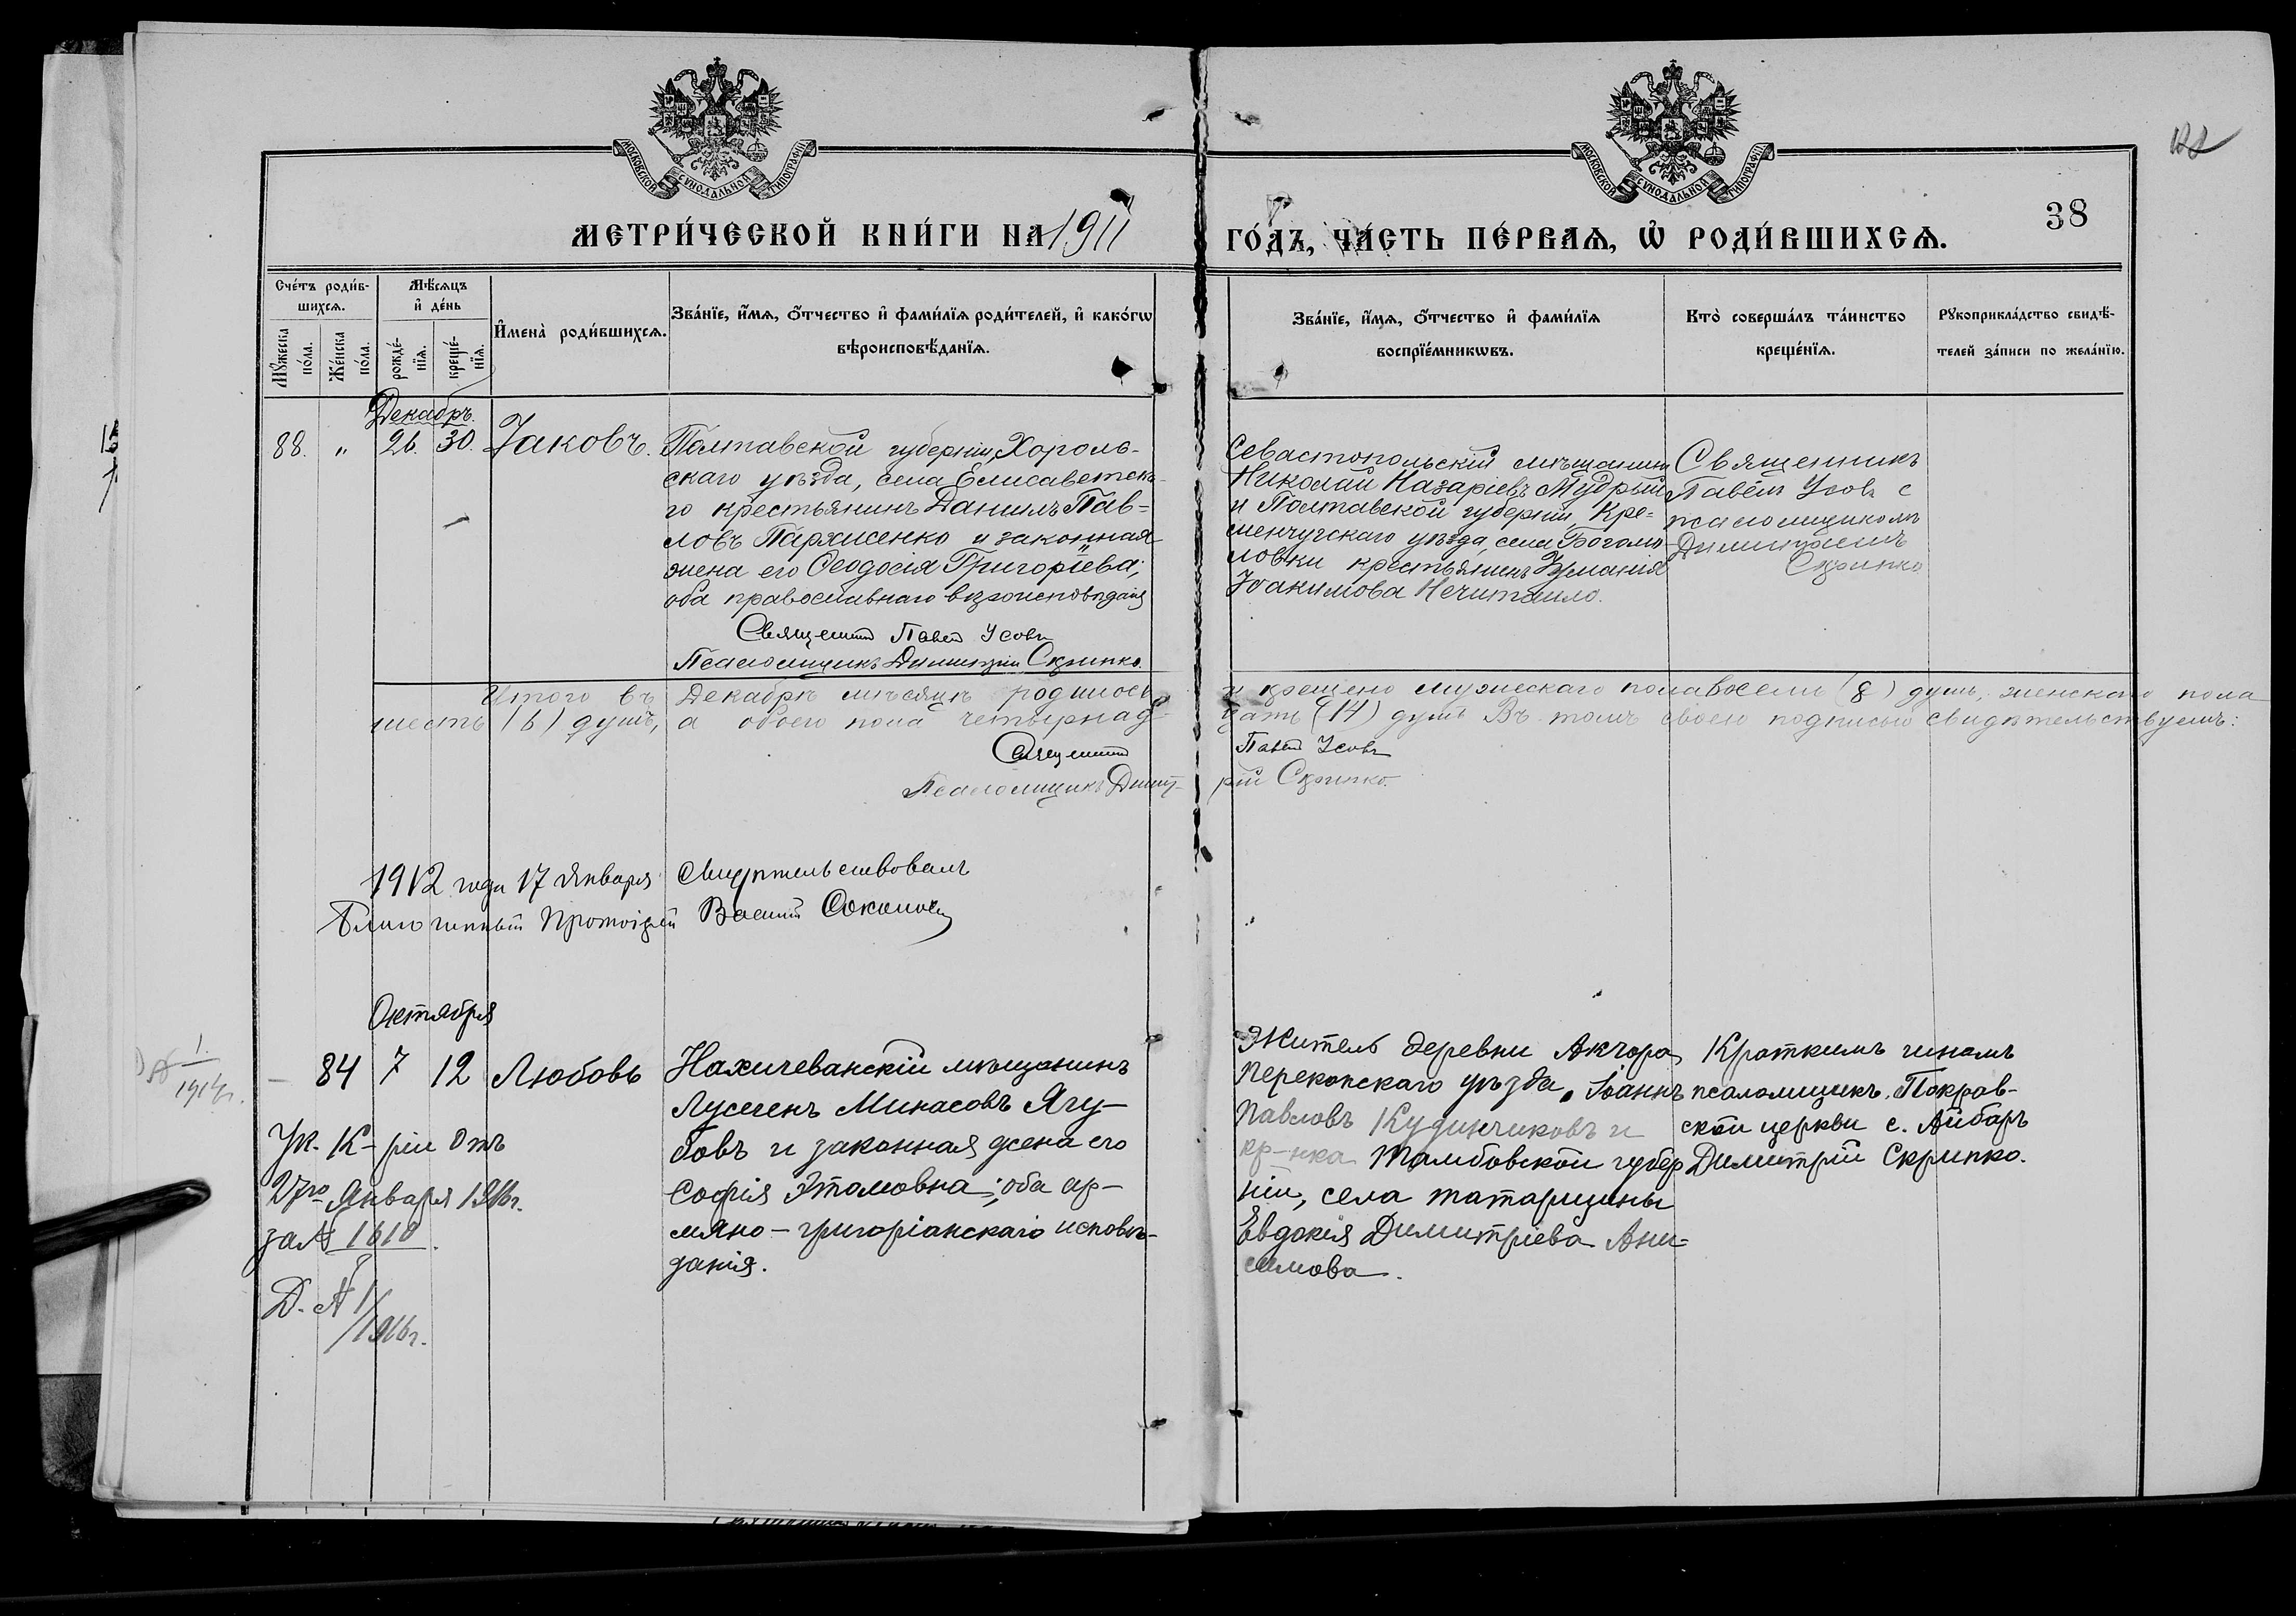 МОСКОВСКОЙ СѴНОДАЛЬНОЙ ТИПОГРАФІИ
МОСКОВСКОЙ СѴНОДАЛЬНОЙ ТИПОГРАФІИ
38
МЕТРИ́ЧЕСКОЙ КНИ́ГИ НА 1911 ГО́ДЪ, ЧА́СТЬ ПЕ́РВАѦ, Ѡ҆ РОДИ́ВШИХСѦ.
Сче́тъ роди́в-
шихсѧ.
Мꙋжеска по́ла.
Же́нска по́ла.
Мѣ́сѧцъ
и҆ де́нь
рожде́-
нїѧ.
креще́-
нїѧ.
И҆мена̀ роди́вшихсѧ.
Зва́нїе, и҆́мѧ, ѻ҆́тчество и҆ фами́лїѧ роди́телей, и҆ како́гѡ
вѣроисповѣ́данїѧ.
Зва́нїе, и҆́мѧ, ѻ҆́тчество и҆ фами́лїѧ
воспрїе́мникѡвъ.
Кто̀ соверша́лъ та́инство
креще́нїѧ.
Рꙋкоприкла́дство свидѣ́-
телей за́писи по жела́нїю.
Декабрь.
88. " 26. 30. Іаковъ.
Полтавской губерніи, Хороль-
скаго уѣзда, села Елисаветска-
го крестьянинъ Даниилъ Пав-
ловъ Пархисенко и законная
жена его Ѳеодосія Григоріева;
оба православнаго вѣроисповѣданія
Священникъ Павелъ Усовъ
Псаломщикъ Димитрій Скрипко.
Севастопольскій мѣщанинъ
Николай Назаріевъ Мудрый
и Полтавской губерніи, Кре-
менчугскаго уѣзда, села Богомо-
ловки крестьянинъ
Іоакимова Нечитайло.
Священникъ
Павелъ Усовъ с
псаломщикомъ
Димитріемъ
Скрипко
Итого въ Декабрѣ мѣсяцѣ родилось и крещено мужескаго пола восемь (8) душъ, женскаго пола
шесть (6) душъ, а обоего пола четырнад- цать (14) душъ. Въ томъ своею подписью свидѣтельствуемъ:
Священникъ Павелъ Усовъ
Псаломщикъ Димит- рій Скрипко.
1912 года 17 Января Свидѣтельствовалъ
Благочинный Протоіерей Василій Соколовъ
Октября
84 7 12 Любовь
Нахичеванскій мѣщанинъ
Лусегенъ Минасовъ Ягу-
бовъ и законная жена его
Софія Этомовна; оба ар-
мяно-григоріанскаго исповѣ-
данія.
Житель деревни Акчора
Перекопскаго уѣзда, Іоаннъ
Павловъ Кудинчиковъ и
кр-нка Тамбовской губер
ніи, села Татарщины
Евдокія Димитріева Ани-
симова.
Краткимъ чиномъ
псаломщикъ Покров-
ской церкви с. Айбаръ
Димитрій Скрипко.
№ 1.
1914г.
Ук. К-ріи отъ
27го Января 1916г.
за № 1610.
Д. № 1/1916г.